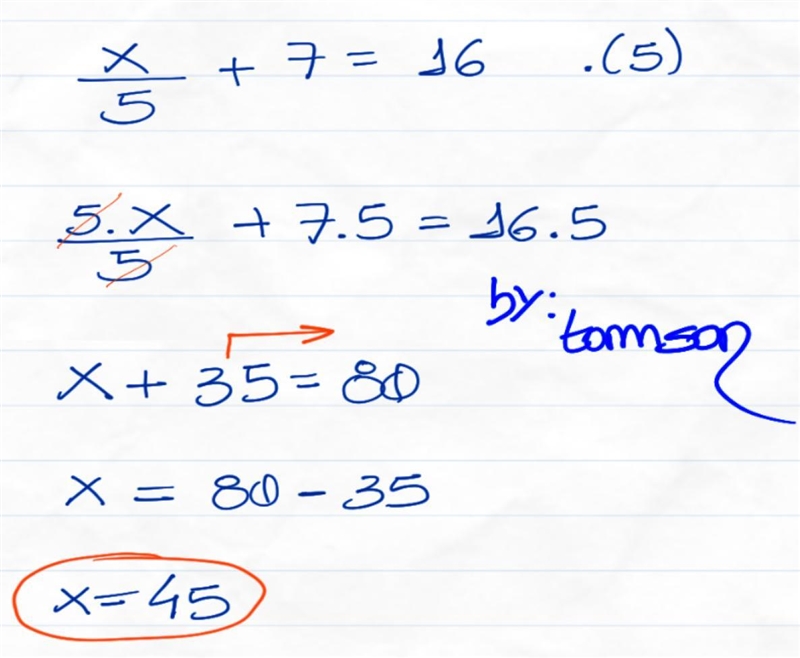 x/5 + 7 = 16 .(5)
5.x/5 + 7.5 = 16.5
by: tomson
x + 35 = 80
x = 80 - 35
x = 45